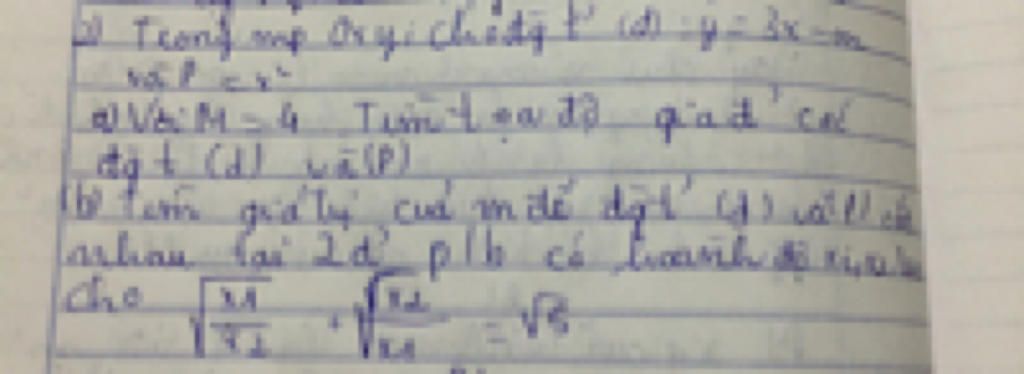 2) Trong mp Oxy; cho đg t' (d): y = 3x - m
và P = x²
a) Với M = 4 Tìm tọa độ giao đ' của
đg t (d) và (P)
b) Tìm giá trị của m để đg t' (d) và P cắt
nhau tại 2 đ' p/b có hoành độ x1, x2
cho √(x1/x2) + √(x2/x1) =